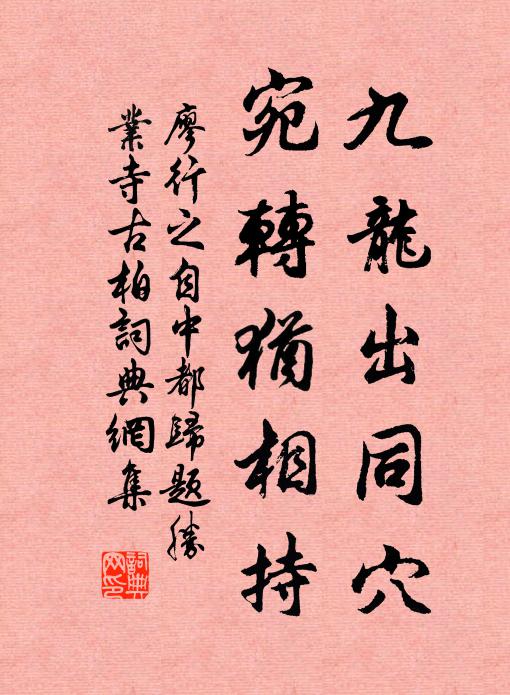 九龍出同穴
宛轉猶相持
廖行之自中都歸題勝
業寺古柏詞典網集
詞典
网印